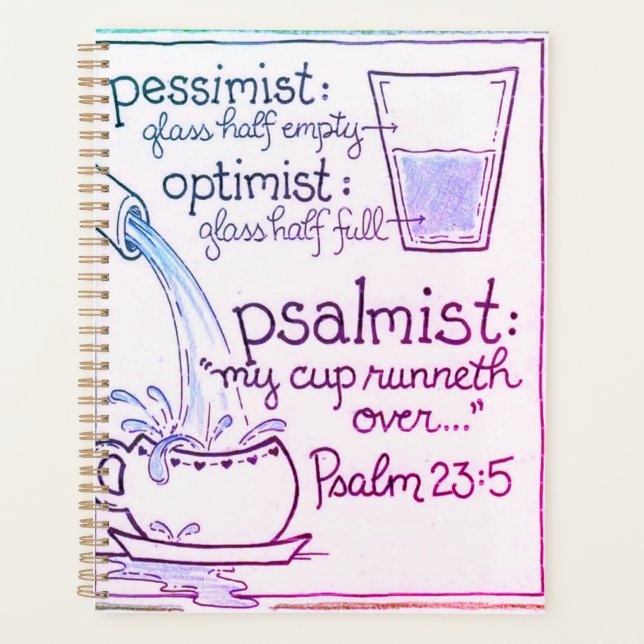 pessimist:
glass half empty→
optimist:
glass half full→
psalmist:
"my cup runneth
over..."
Psalm 23:5